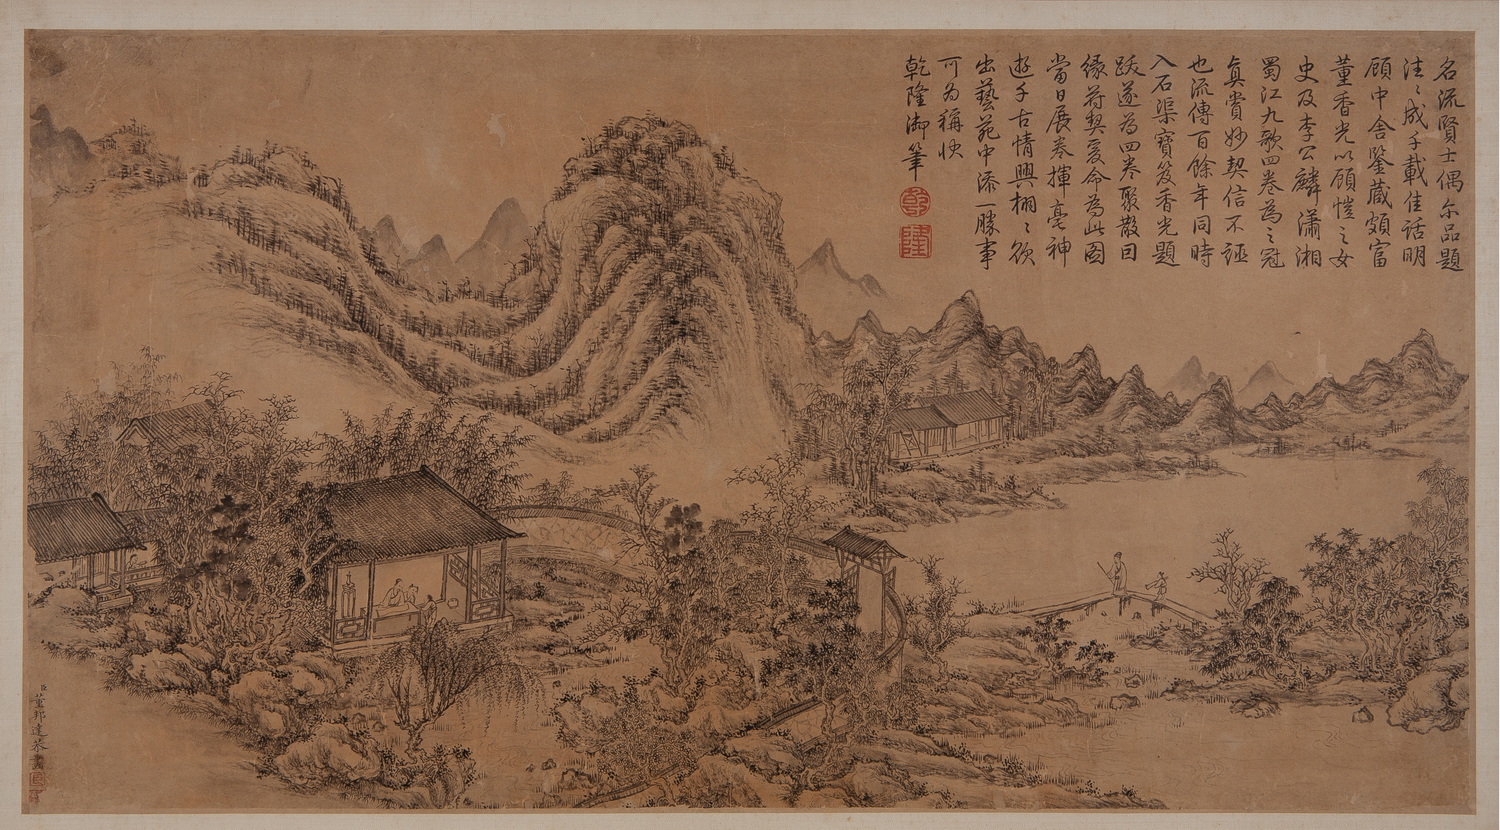 名流賢士偶尔品題
注〻成千載佳話明
顧中舍鑒藏頗富
董香光以顧愷之女
史及李公麟瀟湘
蜀江九歌四卷為之冠
真賞妙契信不誣
也流傳百餘年同時
入石渠寶笈香光題
跋遂為四卷聚散曰
緣符契爰命為此圖
當日展卷揮毫神
遊千古情興栩〻欲
出藝苑中添一勝事
可為稱快
乾隆御筆
乾
隆
臣董邦達恭畫